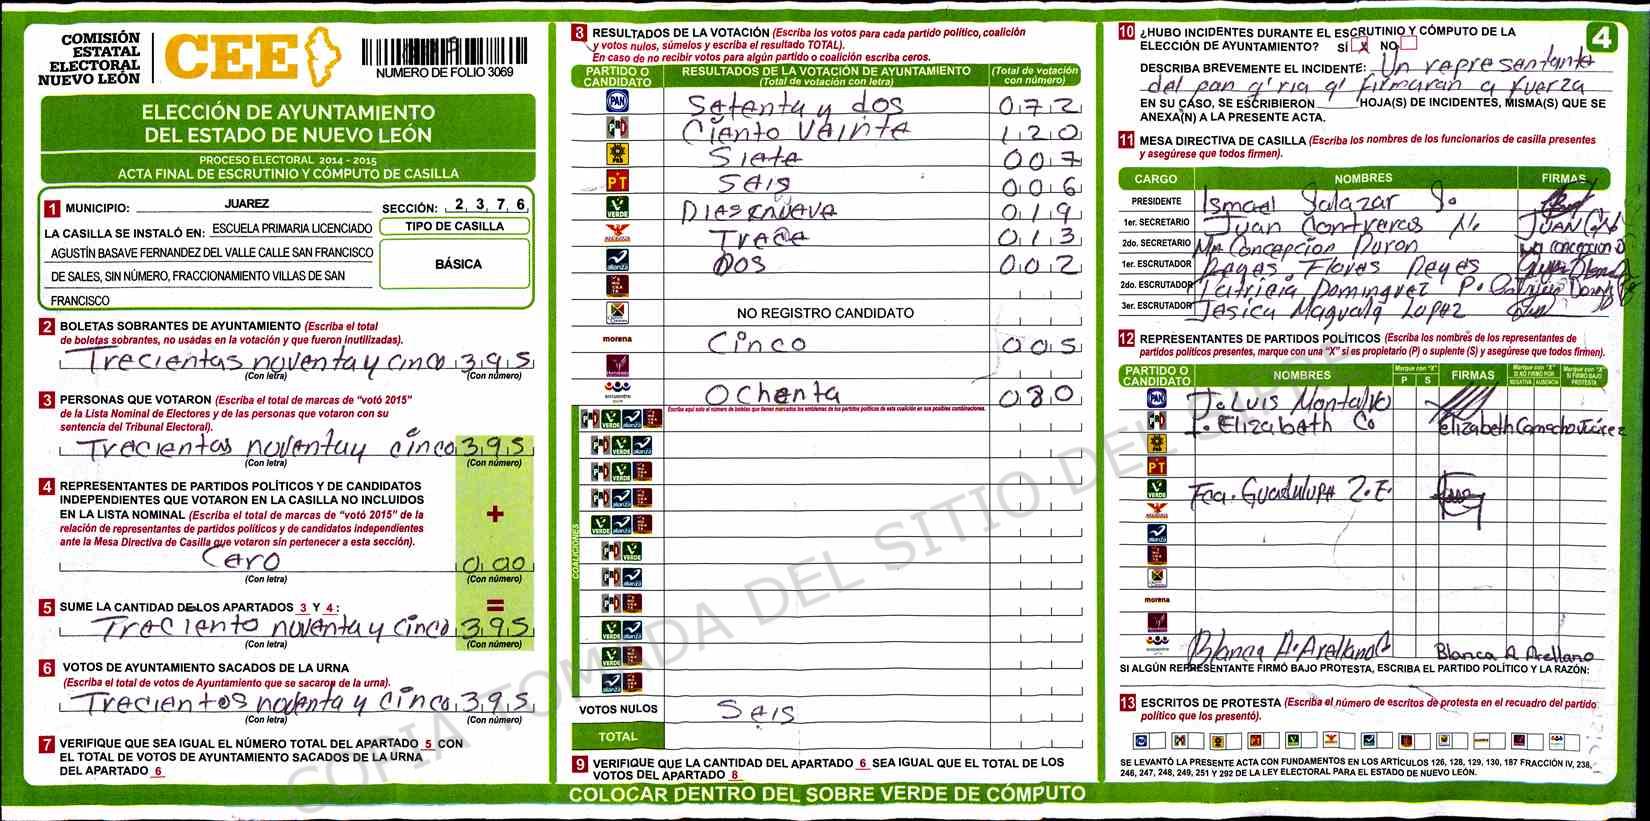 COMISIÓN
ESTATAL
ELECTORAL
NUEVO LEÓN
CEE
NUMERO DE FOLIO 3069
ELECCIÓN DE AYUNTAMIENTO
DEL ESTADO DE NUEVO LEÓN
PROCESO ELECTORAL 2014 - 2015
ACTA FINAL DE ESCRUTINIO Y CÓMPUTO DE CASILLA
1 MUNICIPIO: JUAREZ SECCIÓN: 2,3,7,6
LA CASILLA SE INSTALÓ EN: ESCUELA PRIMARIA LICENCIADO
AGUSTÍN BASAVE FERNANDEZ DEL VALLE CALLE SAN FRANCISCO
DE SALES, SIN NÚMERO, FRACCIONAMIENTO VILLAS DE SAN
FRANCISCO
TIPO DE CASILLA
BÁSICA
2 BOLETAS SOBRANTES DE AYUNTAMIENTO (Escriba el total
de boletas sobrantes, no usadas en la votación y que fueron inutilizadas).
Trecientas noventa y cinco 3,9,5
(Con letra) (Con número)
3 PERSONAS QUE VOTARON (Escriba el total de marcas de “votó 2015”
de la Lista Nominal de Electores y de las personas que votaron con su
sentencia del Tribunal Electoral).
Trecientas noventay cinco 3,9,5
(Con letra) (Con número)
4 REPRESENTANTES DE PARTIDOS POLÍTICOS Y DE CANDIDATOS
INDEPENDIENTES QUE VOTARON EN LA CASILLA NO INCLUIDOS
EN LA LISTA NOMINAL (Escriba el total de marcas de “votó 2015” de la
relación de representantes de partidos políticos y de candidatos independientes
ante la Mesa Directiva de Casilla que votaron sin pertenecer a esta sección).
+
Cero 0,0,0
(Con letra) (Con número)
=
5 SUME LA CANTIDAD DE LOS APARTADOS 3 Y 4:
Treciento noventa y cinco 3,9,5
(Con letra) (Con número)
6 VOTOS DE AYUNTAMIENTO SACADOS DE LA URNA
(Escriba el total de votos de Ayuntamiento que se sacaron de la urna).
Trecientos noventa y cinco 3,9,5
(Con letra) (Con número)
7 VERIFIQUE QUE SEA IGUAL EL NÚMERO TOTAL DEL APARTADO 5 CON
EL TOTAL DE VOTOS DE AYUNTAMIENTO SACADOS DE LA URNA
DEL APARTADO 6
8 RESULTADOS DE LA VOTACIÓN (Escriba los votos para cada partido político, coalición
y votos nulos, súmelos y escriba el resultado TOTAL).
En caso de no recibir votos para algún partido o coalición escriba ceros.
PARTIDO O CANDIDATO RESULTADOS DE LA VOTACIÓN DE AYUNTAMIENTO (Total de votación con letra) (Total de votación con número)
PAN Setenta y dos 0,7,2
PRI Ciento Veinte 1,2,0
PRD Siete 0,0,7
PT Seis 0,0,6
VERDE Diesenueve 0,1,9
Trece 0,1,3
alianza Dos 0,0,2
NO REGISTRO CANDIDATO
morena Cinco 0,0,5
encuentro Ochenta 0,8,0
Escriba aquí solo el número de boletas que tienen marcados los emblemas de los partidos políticos de esta coalición en sus posibles combinaciones.
COALICIONES
PRI VERDE alianza
PRI VERDE alianza
PRI VERDE
PRI alianza
VERDE alianza
PRI VERDE
PRI alianza
PRI
VERDE alianza
VERDE
alianza
VOTOS NULOS Seis
TOTAL
9 VERIFIQUE QUE LA CANTIDAD DEL APARTADO 6 SEA IGUAL QUE EL TOTAL DE LOS
VOTOS DEL APARTADO 8
COLOCAR DENTRO DEL SOBRE VERDE DE CÓMPUTO
10 ¿HUBO INCIDENTES DURANTE EL ESCRUTINIO Y CÓMPUTO DE LA
ELECCIÓN DE AYUNTAMIENTO? SÍ X NO
4
DESCRIBA BREVEMENTE EL INCIDENTE: Un representante
del pan q'ria q' firmaran a fuerza
EN SU CASO, SE ESCRIBIERON HOJA(S) DE INCIDENTES, MISMA(S) QUE SE
ANEXA(N) A LA PRESENTE ACTA.
11 MESA DIRECTIVA DE CASILLA (Escriba los nombres de los funcionarios de casilla presentes
y asegúrese que todos firmen).
CARGO NOMBRES FIRMAS
PRESIDENTE Ismael Salazar
1er. SECRETARIO Juan Contreras
2do. SECRETARIO Ma Concepcion Duron
1er. ESCRUTADOR Reyes Flores Reyes
2do. ESCRUTADOR Patricia Dominguez P.
3er. ESCRUTADOR Jesica Maguala Lopez
12 REPRESENTANTES DE PARTIDOS POLÍTICOS (Escriba los nombres de los representantes de
partidos políticos presentes, marque con una “X” si es propietario (P) o suplente (S) y asegúrese que todos firmen).
PARTIDO O CANDIDATO NOMBRES Marque con “X” P S FIRMAS Marque con “X” SI NO FIRMÓ POR NEGATIVA AUSENCIA Marque con “X” SI FIRMÓ BAJO PROTESTA
PAN J. Luis Montalvo
PRI Elizabeth Co elizabeth Camacho Juárez
PRD
PT
VERDE Fca. Guadulupe Z.E.
alianza
morena
encuentro Blanca A. Arellano Blanca A Arellano
SI ALGÚN REPRESENTANTE FIRMÓ BAJO PROTESTA, ESCRIBA EL PARTIDO POLÍTICO Y LA RAZÓN:
13 ESCRITOS DE PROTESTA (Escriba el número de escritos de protesta en el recuadro del partido
político que los presentó).
SE LEVANTÓ LA PRESENTE ACTA CON FUNDAMENTOS EN LOS ARTÍCULOS 126, 128, 129, 130, 187 FRACCIÓN IV, 238,
246, 247, 248, 249, 251 Y 292 DE LA LEY ELECTORAL PARA EL ESTADO DE NUEVO LEÓN.
COPIA TOMADA DEL SITIO DEL